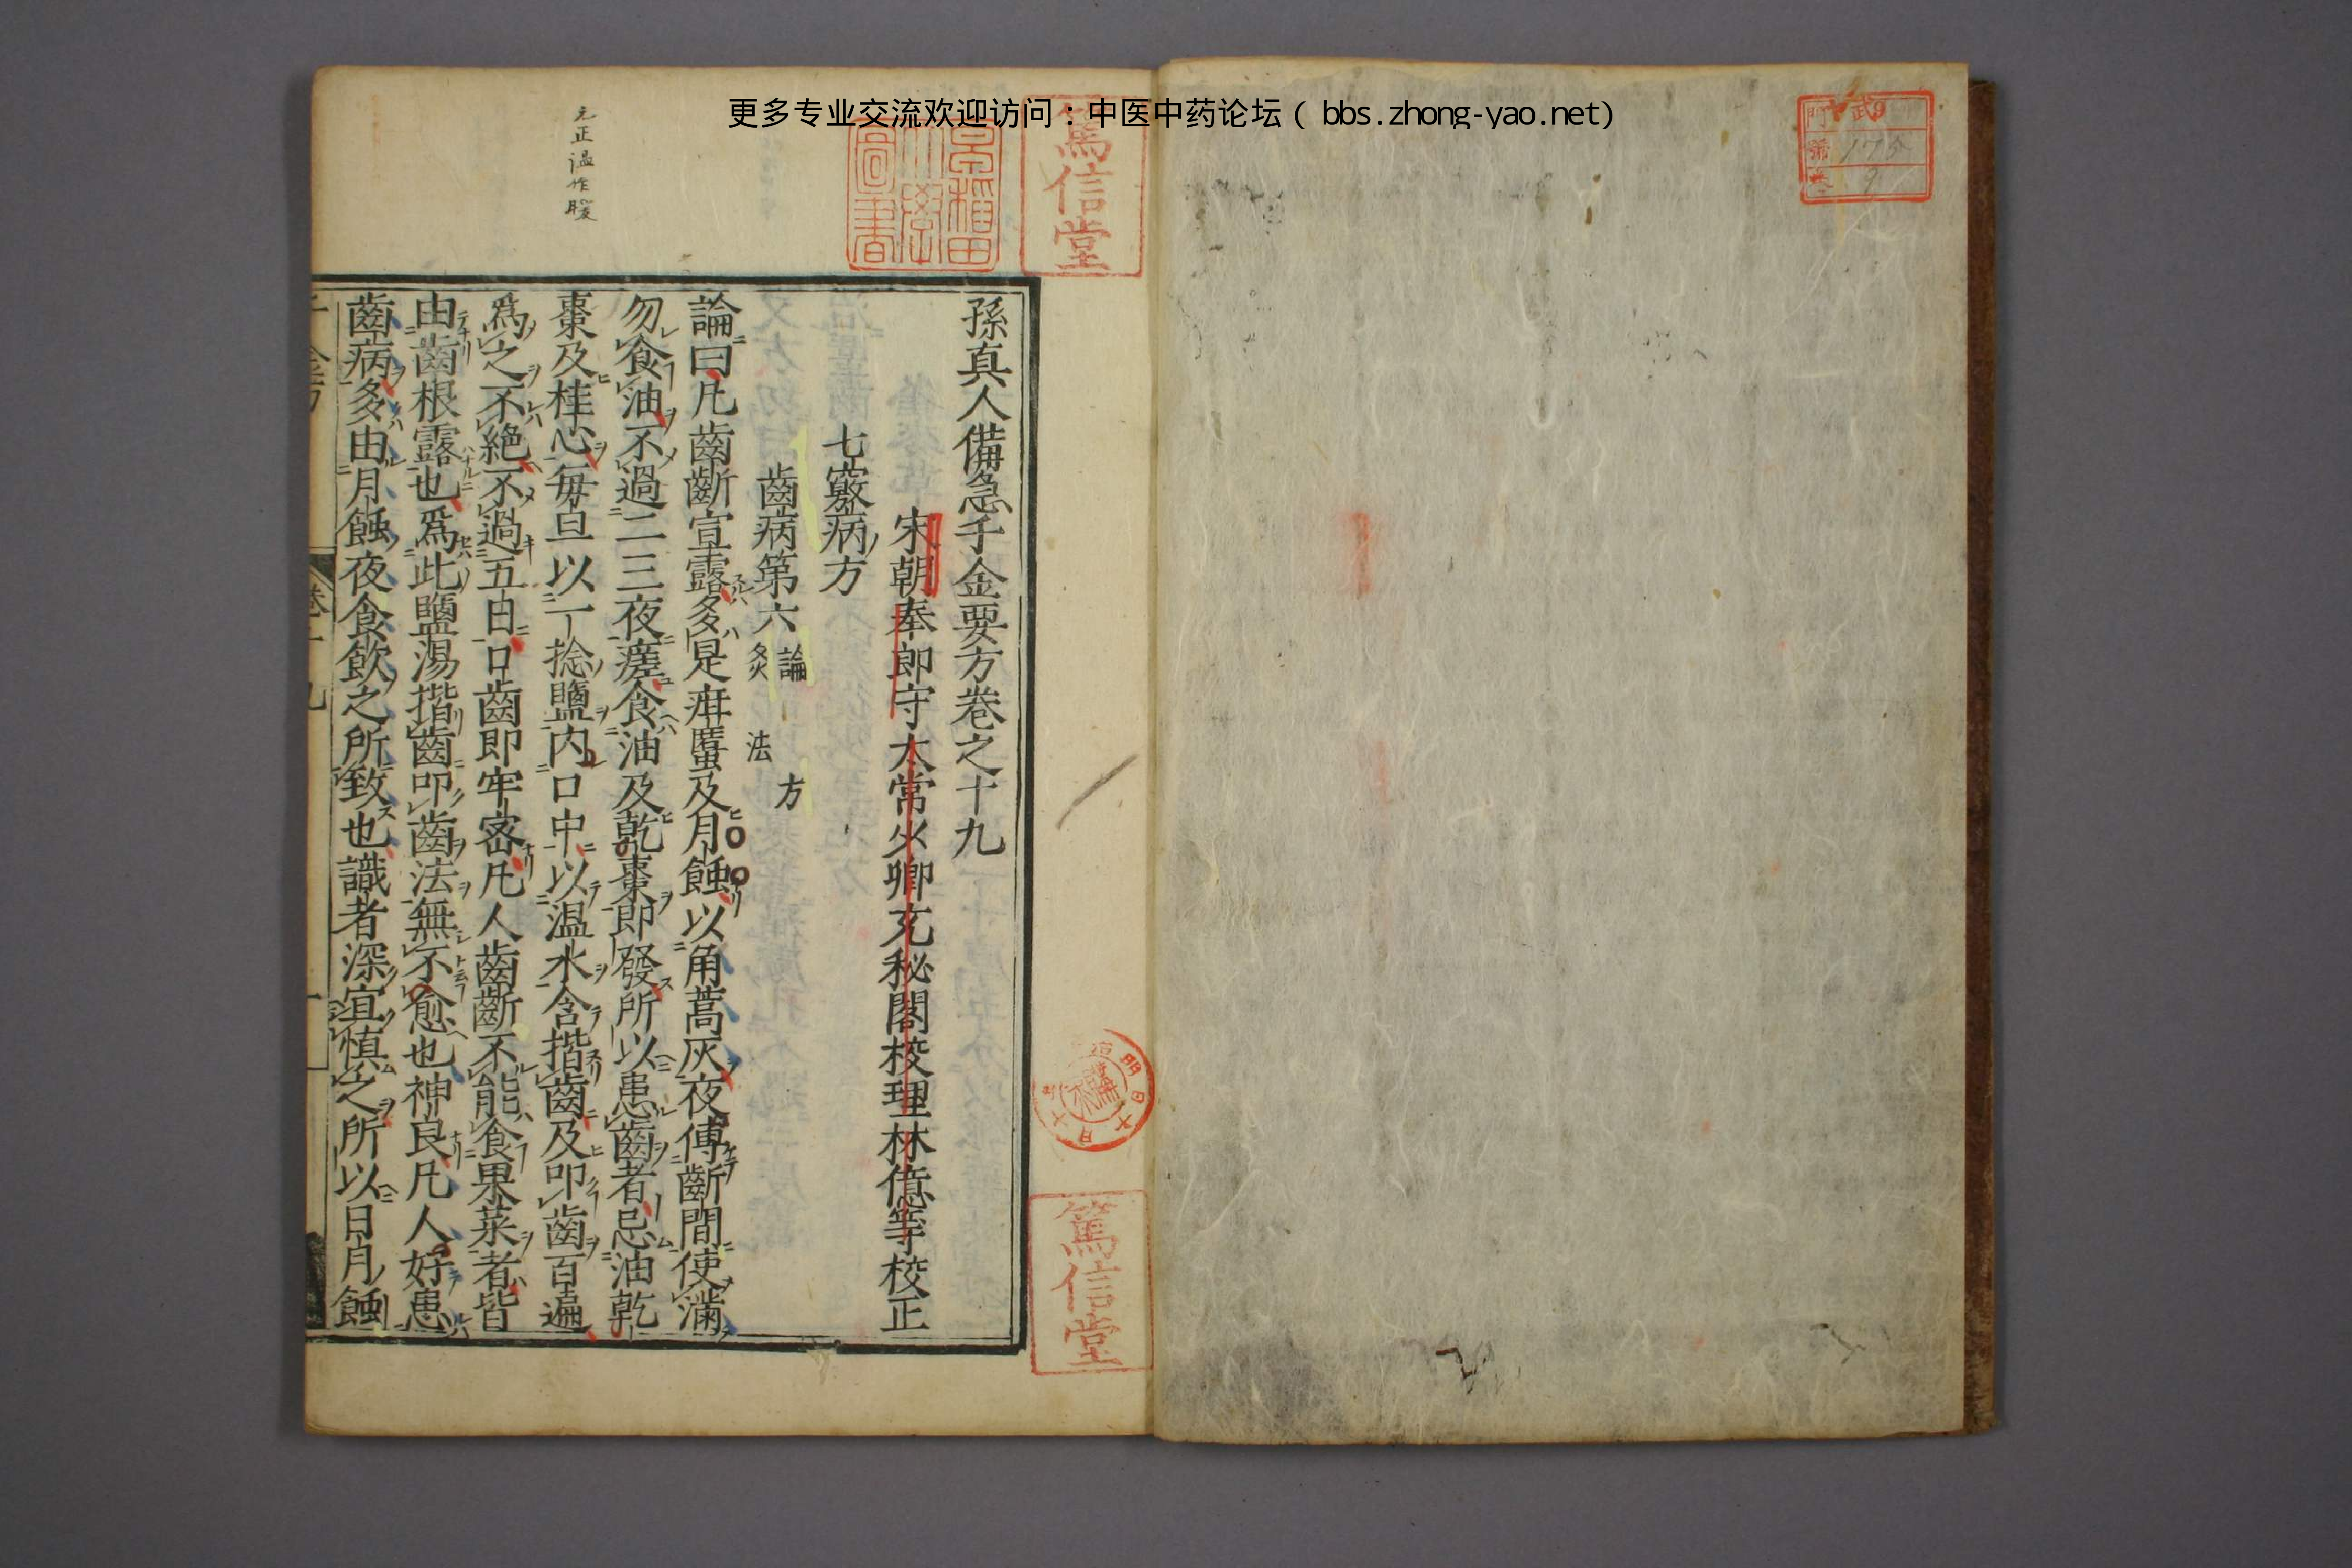 更多专业交流欢迎访问：中医中药论坛（bbs.zhong-yao.net）
篤信堂
早稲田大學圖書
元正溫作暖
孫真人備急千金要方卷之十九
宋朝奉郎守太常少卿充秘閣校理林億等校正
七竅病方
齒病第六 論 方 灸法
論曰凡齒齗宣露多是疳䘌及月蝕以角蒿灰夜傅齗間使滿
勿食油不過二三夜瘥食油及乾棗即發所以患齒者忌油乾
棗及桂心每旦以一捻鹽内口中以温水含揩齒及叩齒百遍
爲之不絶不過五日口齒即牢密凡人齒齗不能食果菜者皆
由齒根露也爲此鹽湯揩齒叩齒法無不愈也神良凡人好患
齒病多由月蝕夜食飲之所致也識者深宜慎之所以日月蝕
卷十九
一
篤信堂
門
號 175
卷 9